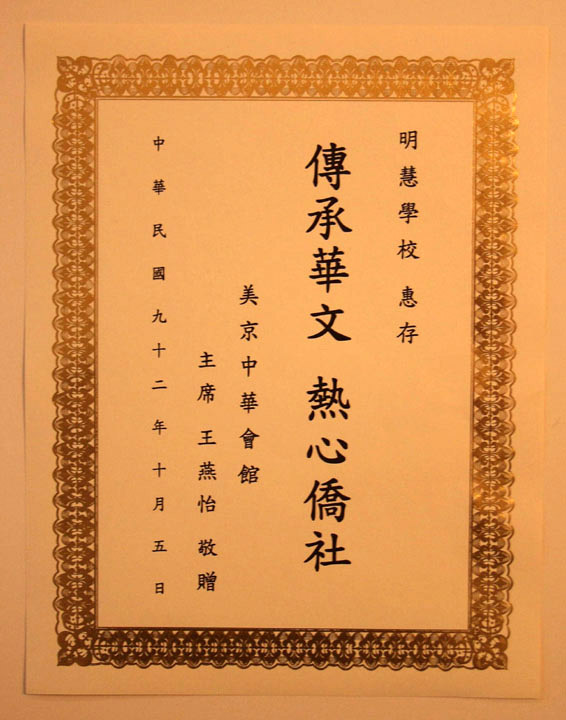 明慧學校 惠存
傳承華文 熱心僑社
美京中華會館
主席 王燕怡 敬贈
中華民國九十二年十月五日